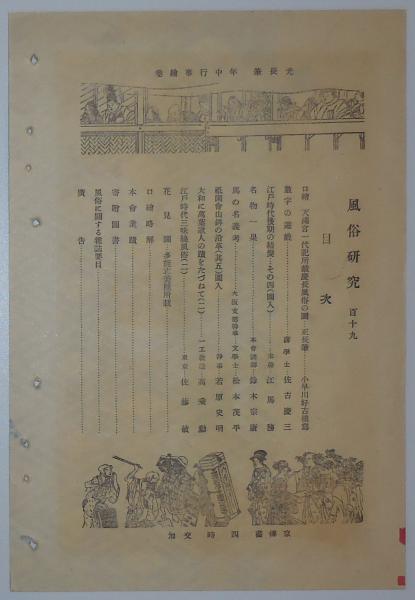 光長筆 年中行事繪卷
風俗研究 百十九
目次
口繪 天滿宮一代記所載慶長風俗の圖 正長筆 小早川好古摸寫
數字の遊戲 藥學士 佐吉慶三
江戸時代後期の結髮…その四(圖入) 主幹 江馬務
名物一束 本會講師 鈴木宗康
馬の名義考 大阪支部幹事 文學士 松本茂平
祇園會山鉾の沿革(其五)圖入 幹事 若原史明
大和に萬葉歌人の蹟をたづねて(二) 一工教諭 高乘勳
江戸時代三味線風俗(二) 東京 佐藤敏
花見圖
口繪略解
本會業蹟
寄贈圖書
風俗に關する雜誌要目
廣告
京傳畫 四時交加